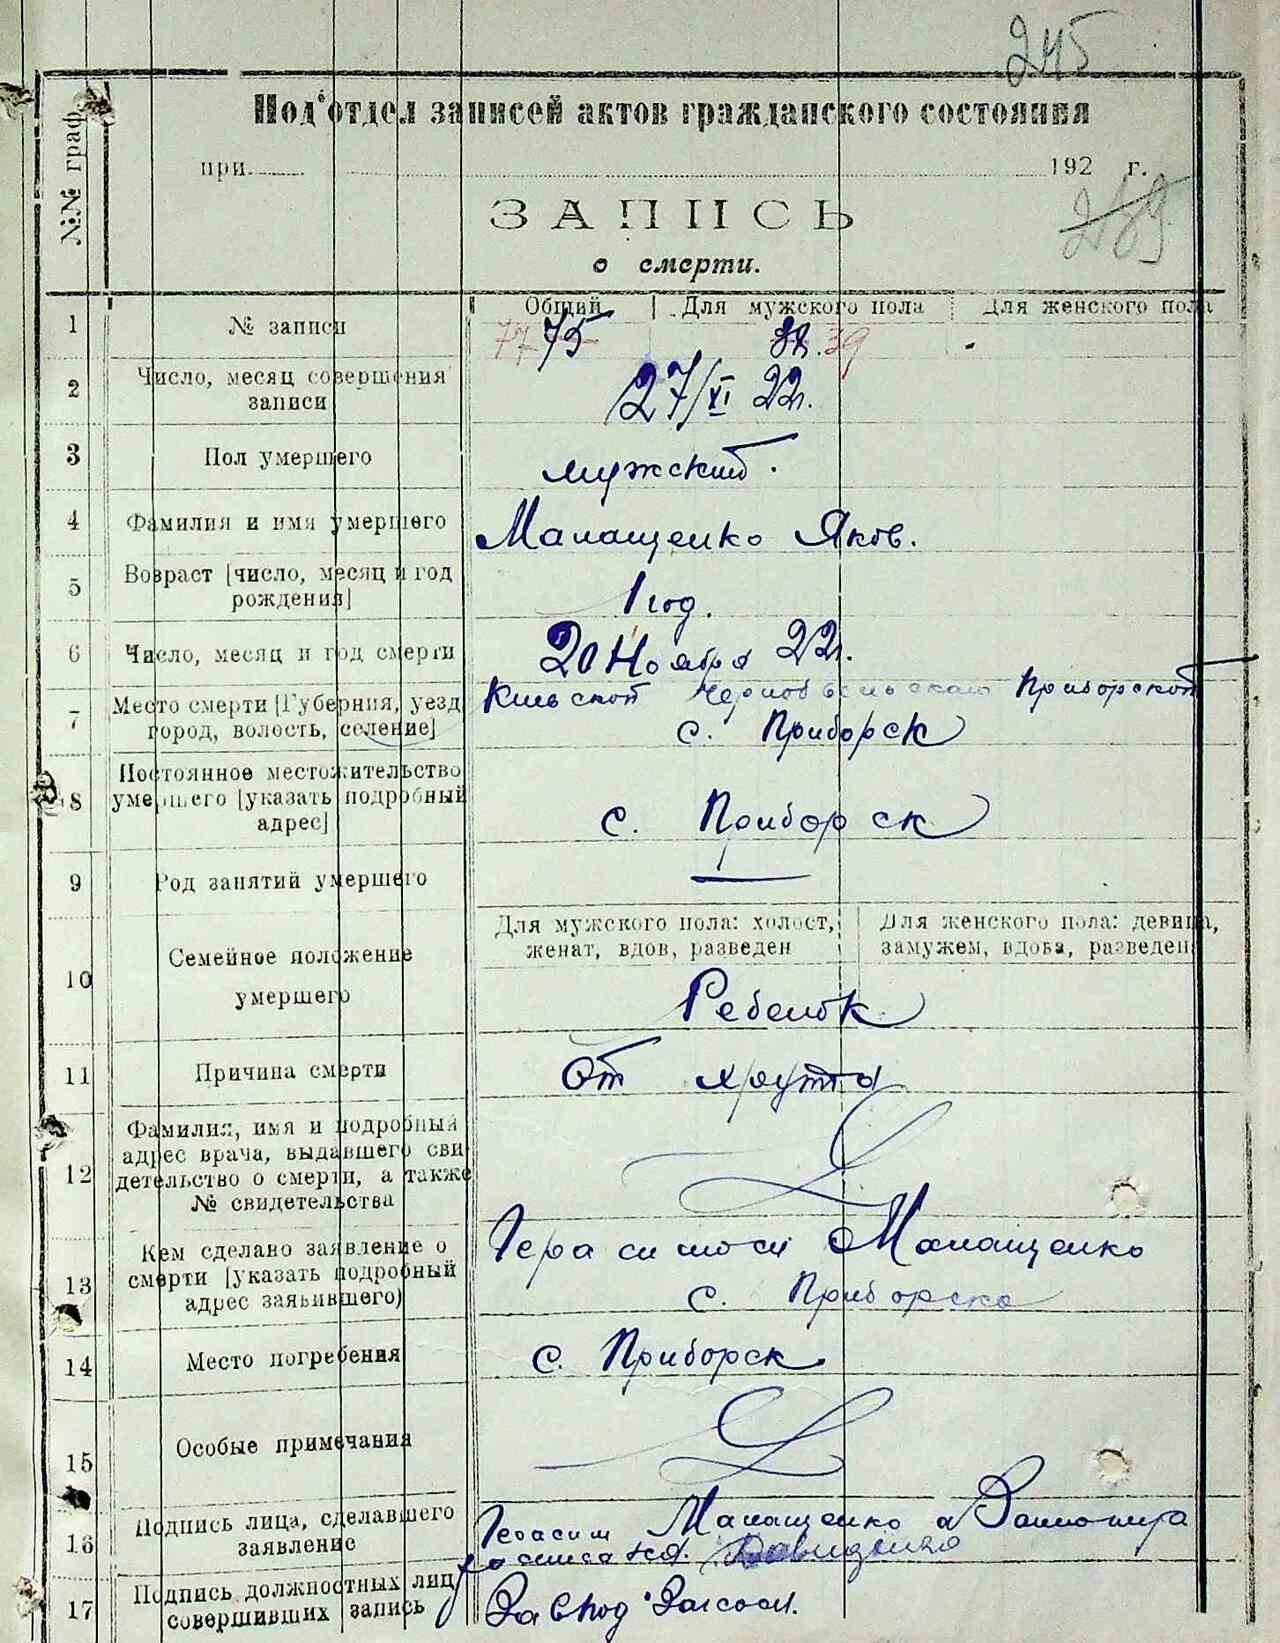 245
Под'отдел записей актов гражданского состояния
№№ граф
при 192 г.
289
ЗАПИСЬ
о смерти.
Общий Для мужского пола Для женского пола
1 № записи 77 75 38. 39 -
2 Число, месяц совершения
записи 27/XI 22г.
3 Пол умершего мужский.
4 Фамилия и имя умершего Малащенко Яков.
5 Возраст [число, месяц и год
рождения] 1 год.
6 Число, месяц и год смерти 20 Ноября 22г.
7 Место смерти [Губерния, уезд, Киевской Чернобыльскаго Приборской
город, волость, селение] с. Приборск
8 Постоянное местожительство
умершего [указать подробный
адрес] с. Приборск
9 Род занятий умершего —
Для мужского пола: холост, Для женского пола: девица,
женат, вдов, разведен замужем, вдова, разведена
10 Семейное положение
умершего Ребенок
11 Причина смерти От
12 Фамилия, имя и подробный
адрес врача, выдавшего сви-
детельство о смерти, а также
№ свидетельства
13 Кем сделано заявление о Герасимом Малащенко
смерти [указать подробный
адрес заявившего) с. Приборска
14 Место погребения с. Приборск
15 Особые примечания
16 Подпись лица, сделавшего Герасим Малащенко а
заявление
17 Подпись должностных лиц,
совершивших запись Завпод Загсом.